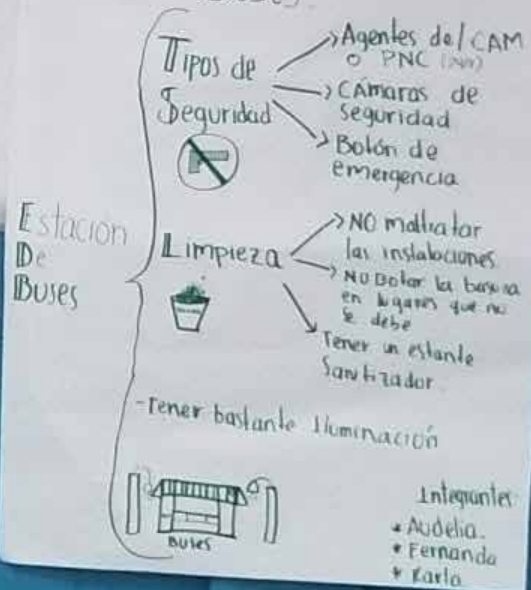 Estación
De
Buses
Tipos de
Seguridad
Agentes del CAM
o PNC
Cámaras de
seguridad
Botón de
emergencia
Limpieza
NO maltratar
las instalaciones
NO Botar la basura
en lugares que no
se debe
Tener un estante
Sanitizador
-Tener bastante Iluminación
BUSES
Integrantes
* Audelia.
* Fernanda
* Karla